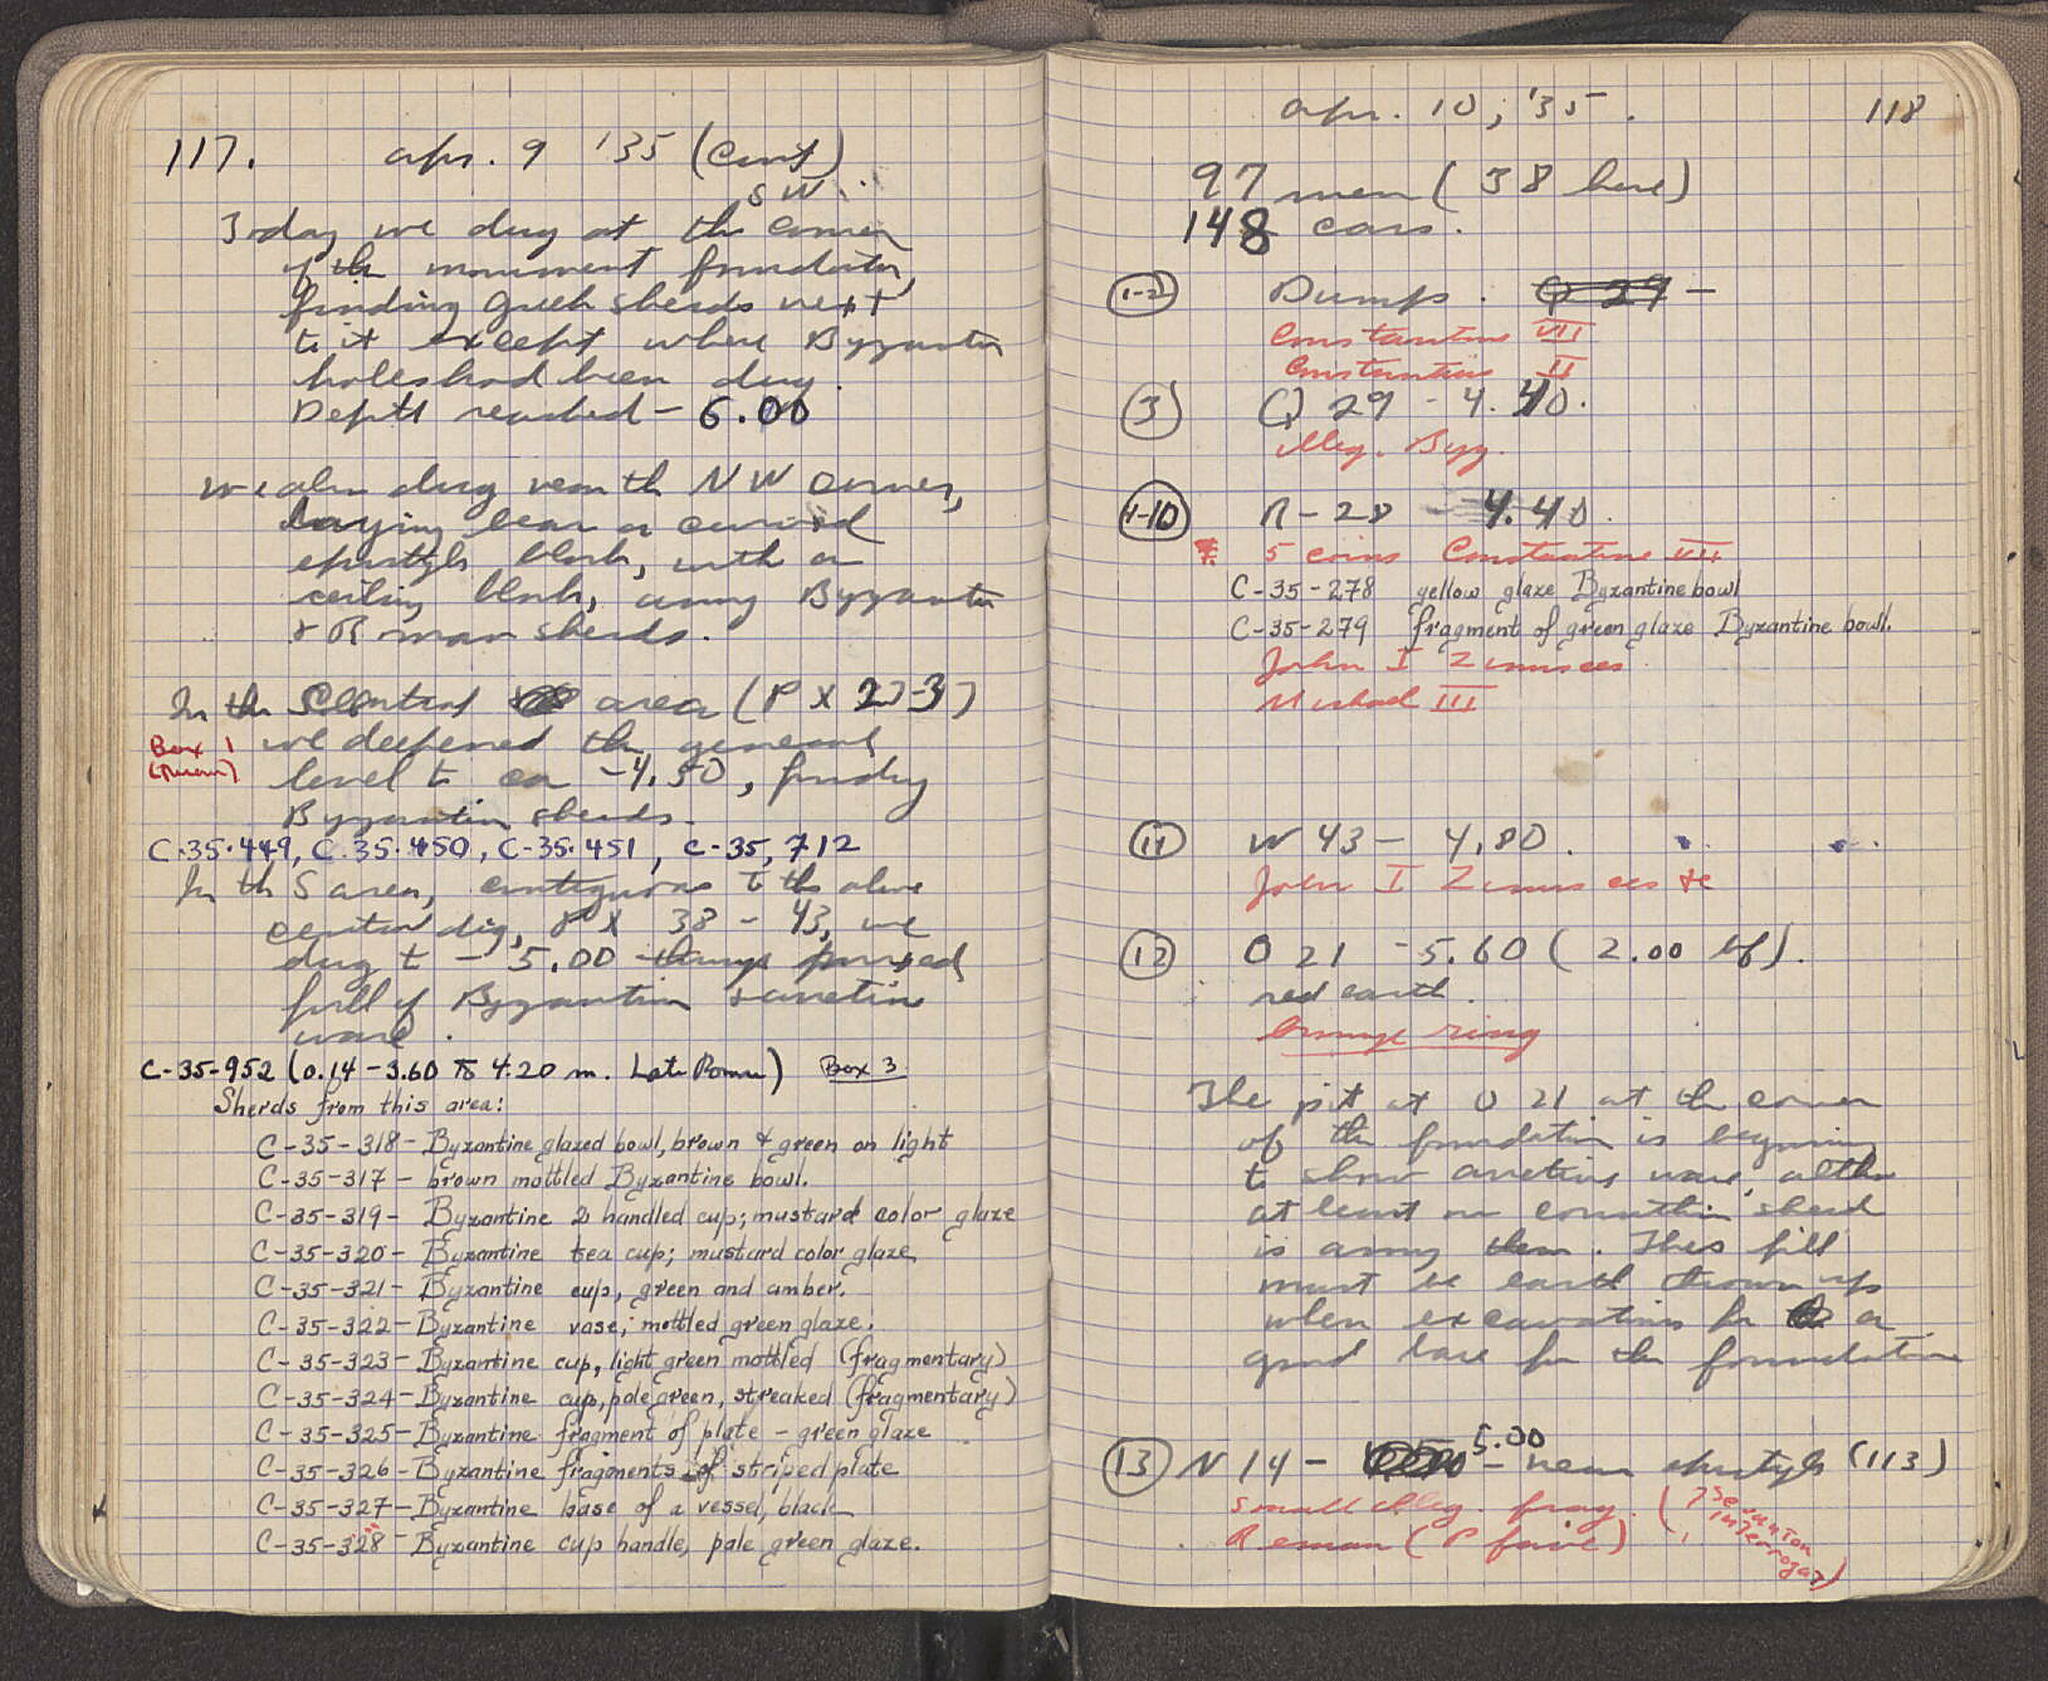 117. Apr. 9 '35 (Cont)
SW.
Today we dug at the corner
of the monument foundation,
finding Greek sherds next
to it except where Byzantin
holes had been dug.
Depth reached - 6.00
We also dug near the NW corner,
laying bear a curved
epistyle block, with a
ceiling block, among Byzantin
& Roman sherds.
In the Central area (P X 27-37)
Box 1
we deepened the general
level to ca -4.50, finding
Byzantin sherds.
C-35-449, C-35-450, C-35-451, C-35, 712
In the S area, contiguous to the above
center dig, P X 38 - 43, we
dug to - 5.00 things proved
full of Byzantin & arretine
ware.
C-35-952 (0.14 - 3.60 to 4.20 m. Late Roman) Box 3
Sherds from this area:
C-35-318 - Byzantine glazed bowl, brown & green on light
C-35-317 - brown mottled Byzantine bowl.
C-35-319 - Byzantine 2 handled cup; mustard color glaze
C-35-320 - Byzantine tea cup; mustard color glaze
C-35-321 - Byzantine cup, green and amber.
C-35-322 - Byzantine vase; mottled green glaze.
C-35-323 - Byzantine cup, light green mottled (fragmentary)
C-35-324 - Byzantine cup, pale green, streaked (fragmentary)
C-35-325 - Byzantine fragment of plate - green glaze
C-35-326 - Byzantine fragments of striped plate
C-35-327 - Byzantine base of a vessel, black
C-35-328 - Byzantine cup handle, pale green glaze.
Apr. 10, '35. 118
97 men (38 here)
148 cars.
(1-2) Dump. Q 29 -
Constantine VII
Constantius II
(3) Q 29 - 4.40.
Illeg. Byz.
(4-10) R - 28 - 4.40.
5 coins Constantine VII
C-35-278 yellow glaze Byzantine bowl
C-35-279 fragment of green glaze Byzantine bowl.
John I Zimisces
Michael III
(11) W 43 - 4.80.
John I Zimisces
(12) O 21 - 5.60 (2.00 bf).
red earth.
bronze ring
The pit at O 21 at the corner
of the foundation is beginning
to show arretine ware, altho
at least one corinthian sherd
is among them. This fill
must be earth thrown up
when excavations for a
good base for the foundation
(13) N 14 - 5.00 - near epistyle (113)
small illeg. frag. (?se junton
interroga?)
Roman (P faire)